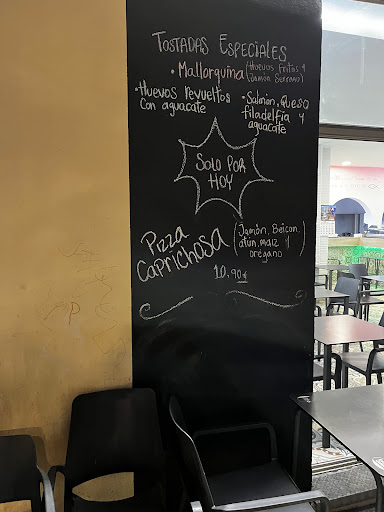 TOSTADAS ESPECIALES
• Mallorquina (Huevos Fritos y
Jamón Serrano)
• Huevos Revueltos
con aguacate
• Salmón, Queso
filadelfia y
aguacate
SOLO POR
HOY
Pizza
CAPRICHOSA
(Jamón, Beicon,
atún, maíz y
orégano)
10,90€